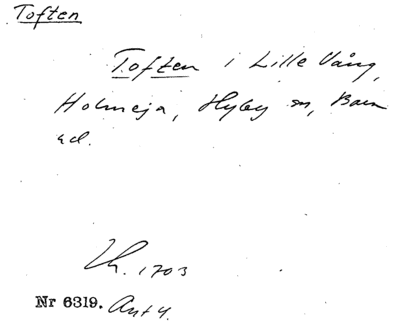 Toften
Toften i Lille Vång,
Holmeja, Hyby sn, Bara
hd.
Lh. 1703
Nr 6319. Ant 4.